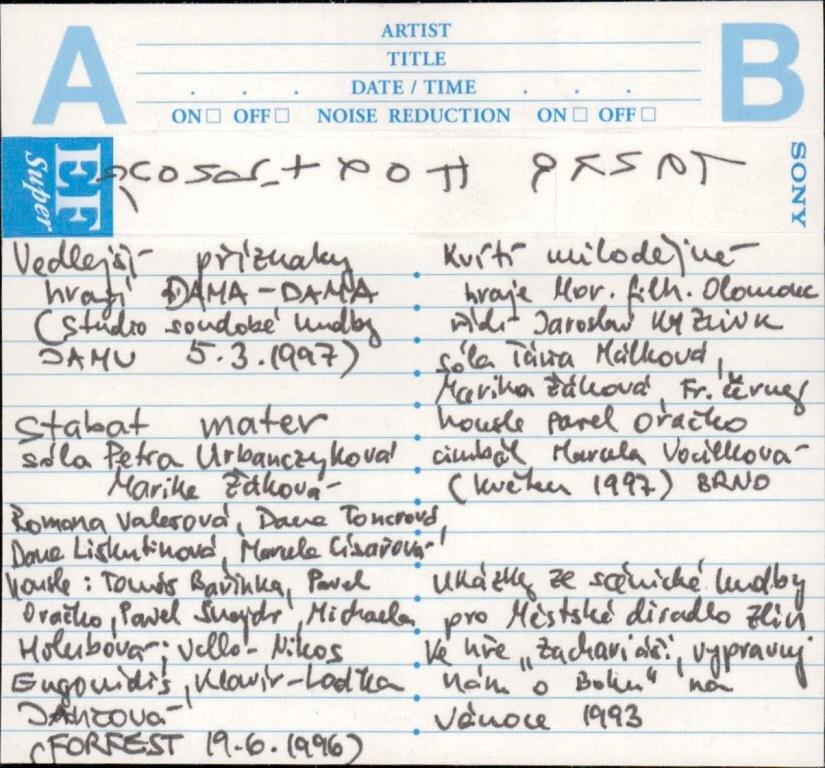 A
B
ARTIST
TITLE
DATE / TIME
ON OFF NOISE REDUCTION ON OFF
EF
Super
SONY
Vedlejší příznaky
hrají DAMA-DAMA
(Studio soudobé hudby
JAMU 5.3.1997)
Stabat mater
sóla Petra Urbanczyková
Marika Žáková
Romana Valesová, Dana Toncrová,
Dana Liskutinová, Marcela Císařová
housle: Tomáš Bařinka, Pavel
Oračko, Pavel Šnajdr, Michaela
Holubová; Vcllo - Nikos
Eugonidis, Klavír - Ladka
(FORFEST 19.6.1996)
Kvítí milodějné
hraje Mor. filh. Olomouc
řídí Jaroslav KYZLINK
sóla Tána Málková,
Marika Žáková, Fr. Černý
housle Pavel Oračko
cimbál Marcela Vocilková
(květen 1997) BRNO
Ukázky ze scénické hudby
pro Městské divadlo Zlín
Ke hře „Zachariáši, vypravuj
nám o Bohu" na
Vánoce 1993